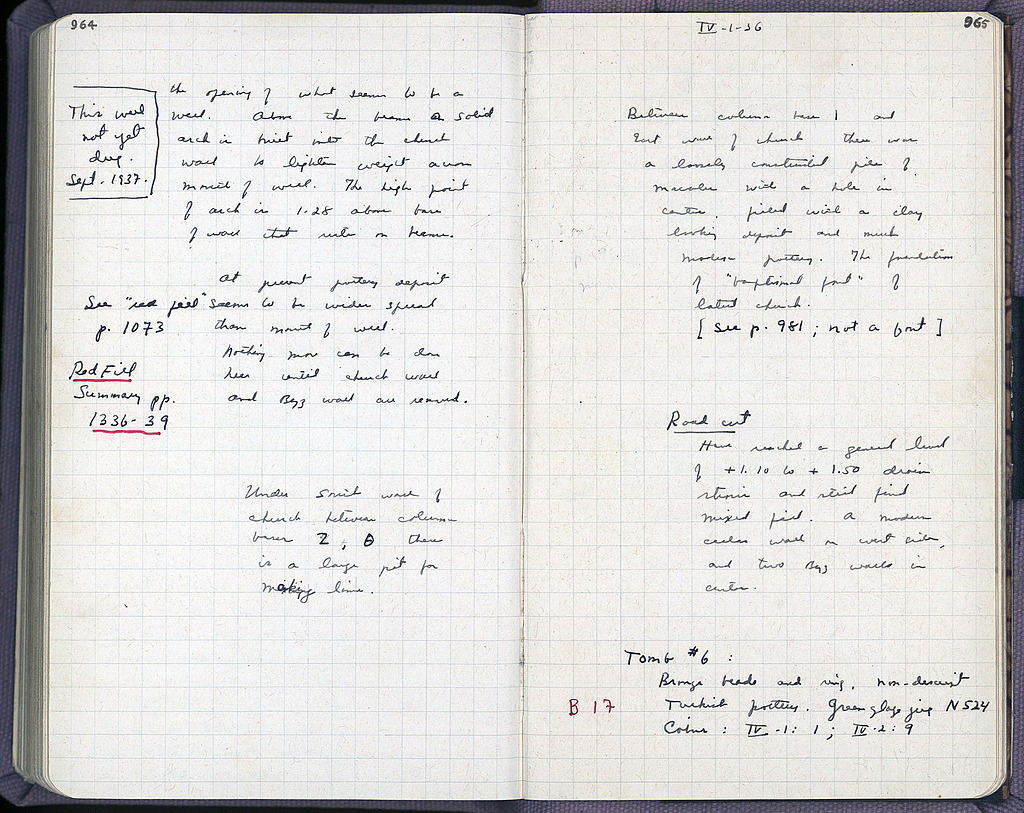 964
This well
not yet
dug.
Sept. 1937.
the opening of what seems to be a
well. Above the beam a solid
arch is built into the church
wall to lighten weight across
mouth of well. The high point
of arch is 1.28 above base
of wall that rests on beam.
At present pottery deposit
seems to be wider spread
than mouth of well.
Nothing more can be done
here until church wall
and Byz wall are removed.
See "red fill"
p. 1073
Red Fill
Summary pp.
1336-39
Under South wall of
church between column
bases Z, Θ there
is a large pit for
making lime.
IV-1-36
965
Between column base 1 and
East wall of church there was
a loosely constructed pile of
masonry with a hole in
center, filled with a clay
looking deposit and much
modern pottery. The foundation
of "baptismal font" of
latest church.
[See p. 981; not a font]
Road cut
Have reached a general level
of +1.10 to +1.50 down
and still find
mixed fill. A modern
wall on west side,
and two Byz walls in
center.
Tomb #6:
Bronze beads and ring, non-descript
B 17
Turkish pottery. Green glaze jug N524
Coins: IV-1: 1; IV-2: 9